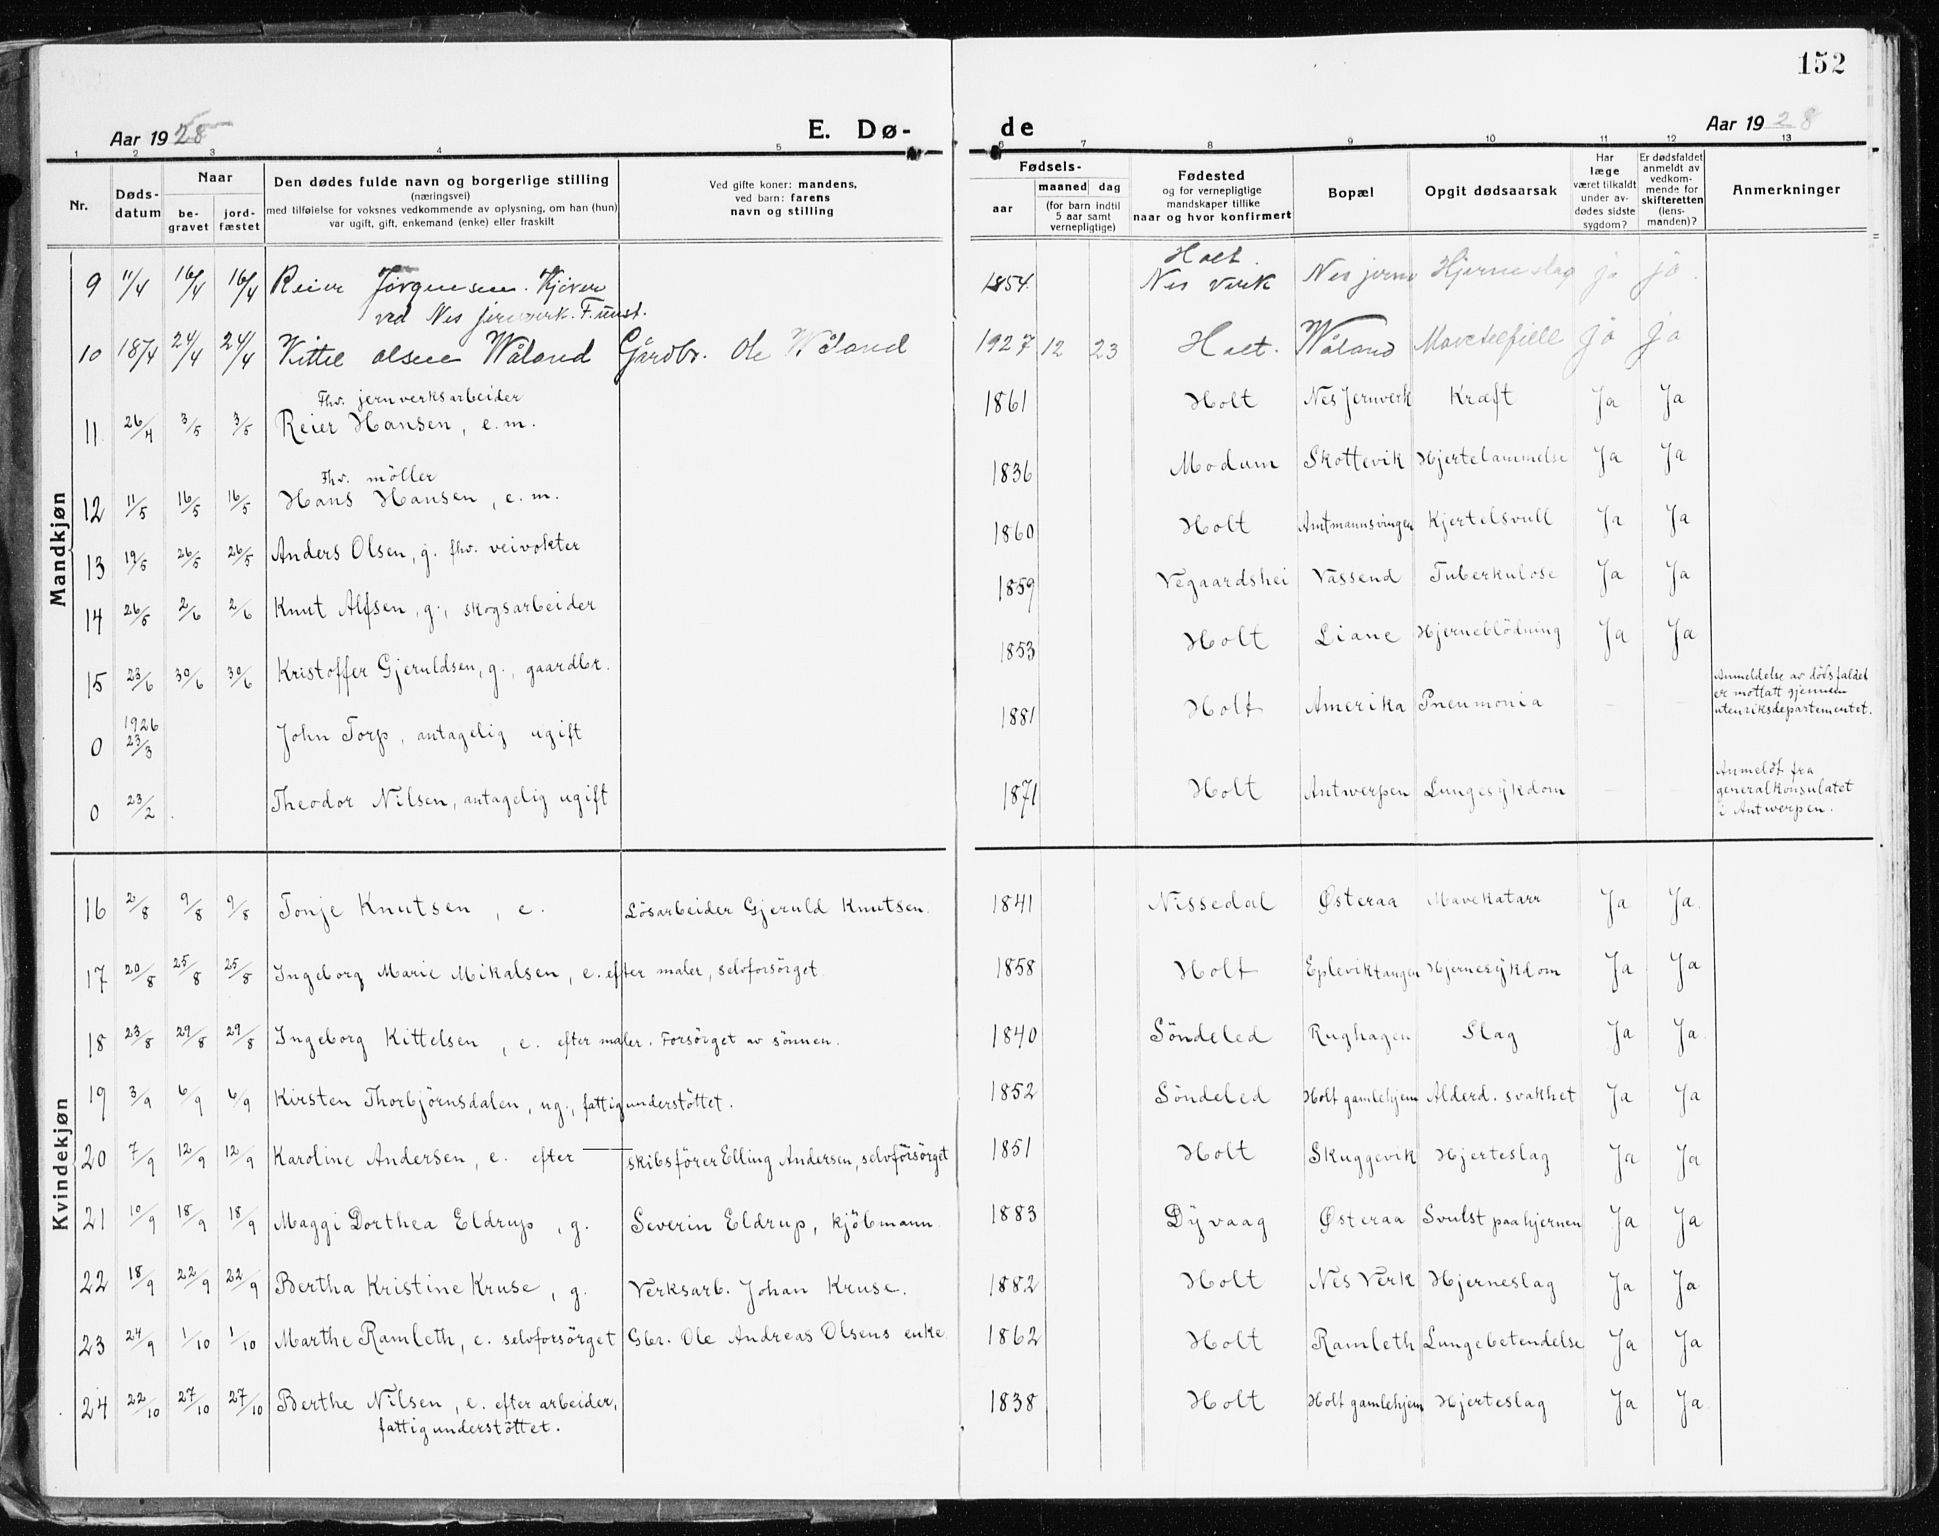 152
Aar 1928 E. Dø- de Aar 1928
1 2 3 4 5 6 7 8 9 10 11 12 13
Nr. Døds-datum Naar be-gravet jord-fæstet Den dødes fulde navn og borgerlige stilling (næringsvei) med tilføielse for voksnes vedkommende av oplysning, om han (hun) var ugift, gift, enkemand (enke) eller fraskilt Ved gifte koner: mandens, ved barn: farens navn og stilling Fødsels- aar maaned dag (for barn indtil 5 aar samt vernepligtige) Fødested og for vernepligtige mandskaper tillike naar og hvor konfirmert Bopæl Opgit dødsaarsak Har læge været tilkaldt under av-dødes sidste sygdom? Er dødsfaldet anmeldt av vedkom-mende for skifteretten (lens-manden)? Anmerkninger
Mandkjøn
9 11/4 16/4 16/4 Reier Jörgensen. Kjører ved Nes jernverk. F.unst. 1854 Holt. Nes Verk Nes jernv Hjerneslag ja ja.
10 18/4 24/4 24/4 Kittil Olsen Wåland Gårdbr. Ole Wåland 1927 12 23 Holt. Wåland ja ja
11 26/4 3/5 3/5 Fhv. jernverksarbeider Reier Hansen, e.m. 1861 Holt Nes Jernverk Kræft Ja Ja
12 11/5 16/5 16/5 Fhv. möller Hans Hansen, e.m. 1836 Modum Skottevik Hjertelammelse Ja Ja
13 19/5 26/5 26/5 Anders Olsen, g. fhv. veivokter 1860 Holt Amtmannsvingen Kjertelsvull Ja Ja
14 26/5 2/6 2/6 Knut Alfsen, g., skogsarbeider 1859 Vegaardshei Vassend Tuberkulose Ja Ja
15 23/6 30/6 30/6 Kristoffer Gjeruldsen, g., gaardbr. 1853 Holt Liane Hjerneblödning Ja Ja
0 1926 23/3 John Torp, antagelig ugift 1881 Holt Amerika Pneumonia — — Anmeldelse av dödsfaldet er mottatt gjennem utenriksdepartementet.
0 23/2 Theodor Nilsen, antagelig ugift 1871 Holt Antwerpen Lungesykdom — — Anmeldt fra generalkonsulatet i Antwerpen.
Kvindekjøn
16 2/8 9/8 9/8 Tonje Knutsen, e. Lösarbeider Gjeruld Knutsen. 1841 Nissedal Østeraa Mavekatarr Ja Ja.
17 20/8 25/8 25/8 Ingeborg Marie Mikalsen, e. efter maler, selvforsörget 1858 Holt Epleviktangen Hjernesykdom Ja Ja
18 23/8 29/8 29/8 Ingeborg Kittelsen, e. efter maler. Forsörget av sönnen. 1840 Söndeled Rughagen Slag Ja Ja.
19 3/9 6/9 6/9 Kirsten Thorbjörnsdalen, ug., fattigunderstöttet. 1852 Söndeled Holt gamlehjem Alderd. svakhet Ja Ja
20 7/9 12/9 12/9 Karoline Andersen, e. efter — skibsförer Elling Andersen, selvforsörget 1851 Holt Skuggevik Hjerteslag Ja Ja
21 10/9 18/9 18/9 Maggi Dorthea Eldrup, g. Severin Eldrup, kjöbmann. 1883 Dyvaag Østeraa Svulst paa hjernen Ja Ja
22 18/9 22/9 22/9 Bertha Kristine Kruse, g. Verksarb. Johan Kruse. 1882 Holt Nes Verk Hjerneslag Ja Ja.
23 24/9 1/10 1/10 Marthe Ramleth, e. selvforsörget Gbr. Ole Andreas Olsens enke. 1862 Holt Ramleth Lungebetendelse Ja Ja
24 22/10 27/10 27/10 Berthe Nilsen, e. efter arbeider, fattigunderstöttet. 1838 Holt Holt gamlehjem Hjerteslag Ja Ja.